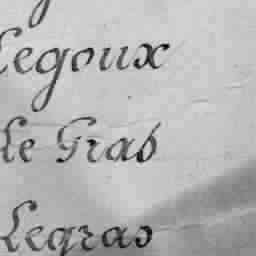 Legoux
Le Gras
Legras